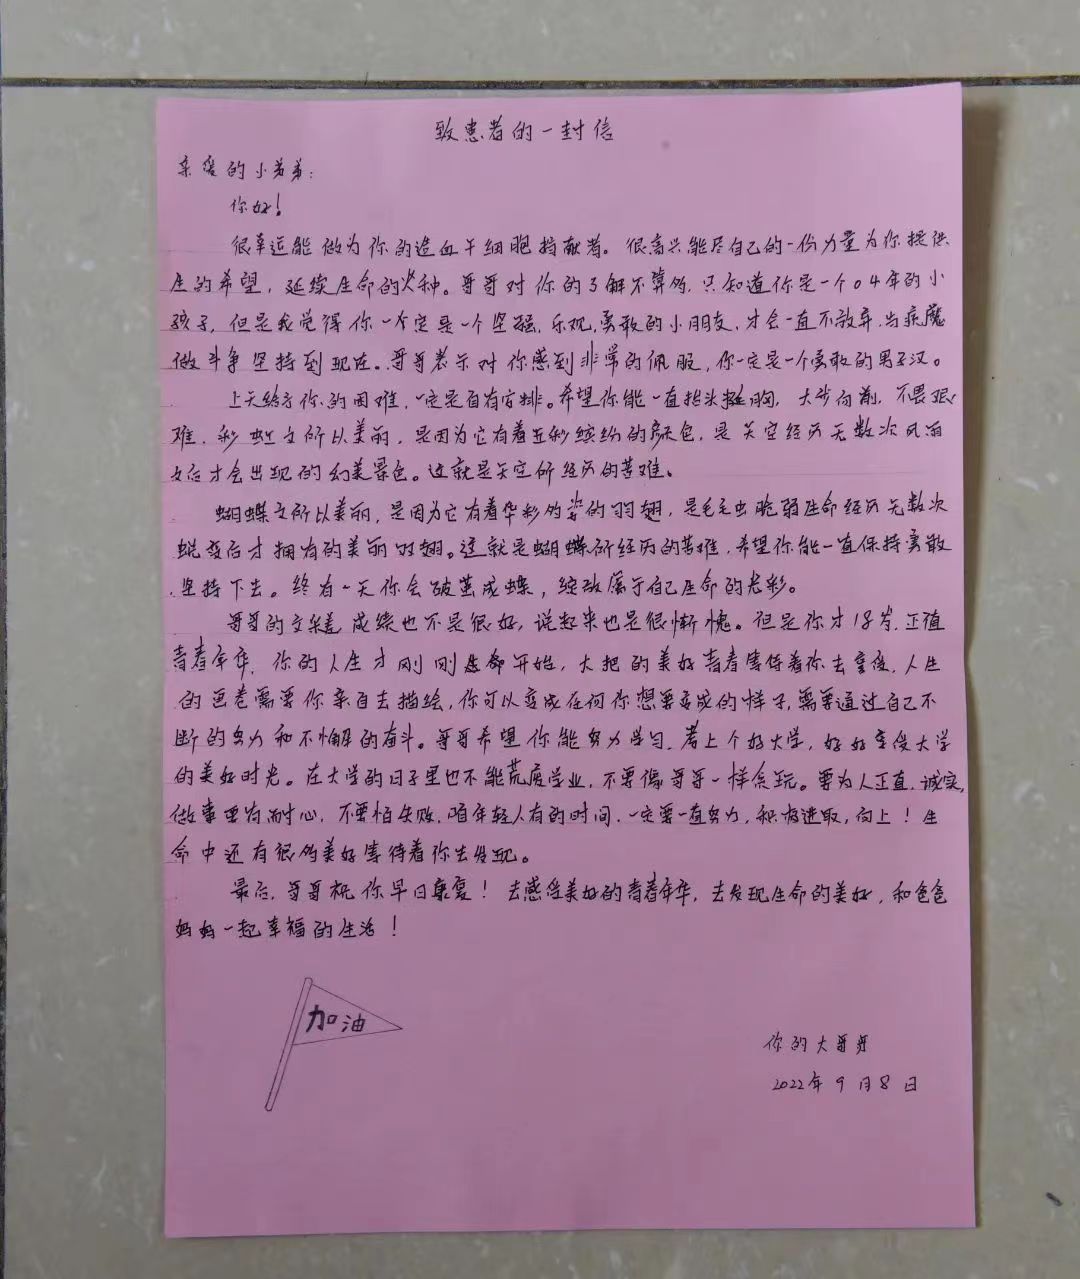 致患者的一封信
亲爱的小弟弟：
你好！
很幸运能做为你的造血干细胞捐献者。很高兴能尽自己的一份力量为你提供
生的希望，延续生命的火种。哥哥对你的了解不算多，只知道你是一个04年的小
孩子，但是我觉得你一定是一个坚强，乐观，勇敢的小朋友，才会一直不放弃，与病魔
做斗争坚持到现在。哥哥表示对你感到非常的佩服，你一定是一个勇敢的男子汉。
上天给予你的困难，一定是自有安排。希望你能一直抬头挺胸，大步向前，不畏艰
难，彩虹之所以美丽，是因为它有着五彩缤纷的颜色，是天空经历无数次风雨
之后才会出现的幻美景色。这就是天空所经历的苦难。
蝴蝶之所以美丽，是因为它有着华彩多姿的羽翅，是毛毛虫脆弱生命经历无数次
蜕变后才拥有的美丽双翅。这就是蝴蝶所经历的苦难，希望你能一直保持勇敢
坚持下去。终有一天你会破茧成蝶，绽放属于自己生命的光彩。
哥哥的文采差，成绩也不是很好，说起来也是很惭愧。但是你才18岁，正值
青春年华，你的人生才刚刚开始，大把的美好青春等待着你去享受，人生
的画卷需要你亲自去描绘，你可以变成任何你想要变成的样子，需要通过自己不
断的努力和不懈的奋斗。哥哥希望你能努力学习，考上个好大学，好好享受大学
的美好时光。在大学的日子里也不能荒废学业，不要像哥哥一样贪玩。要为人正直，诚实，
做事要有耐心，不要怕失败，咱年轻人有的时间，一定要一直努力，积极进取，向上！生
命中还有很多美好等待着你去发现。
最后，哥哥祝你早日康复！去感受美好的青春年华，去发现生命的美好，和爸爸
妈妈一起幸福的生活！
加油
你的大哥哥
2022年9月8日